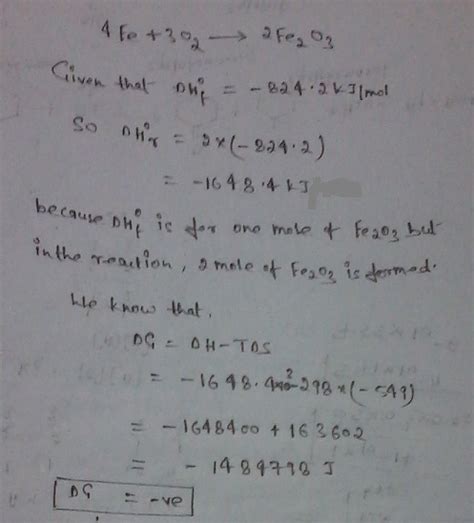 4Fe + 3O₂ ⟶ 2Fe₂O₃
Given that DH°f = -824.2 kJ/mol
So DH°r = 2×(-824.2)
= -1648.4 kJ
because DH°f is for one mole of Fe₂O₃ but
in the reaction, 2 mole of Fe₂O₃ is formed.
We know that,
DG = DH-TDS
= -1648.4 298×(-549)
= -1648400 + 163602
= -1484798 J
DG = -ve